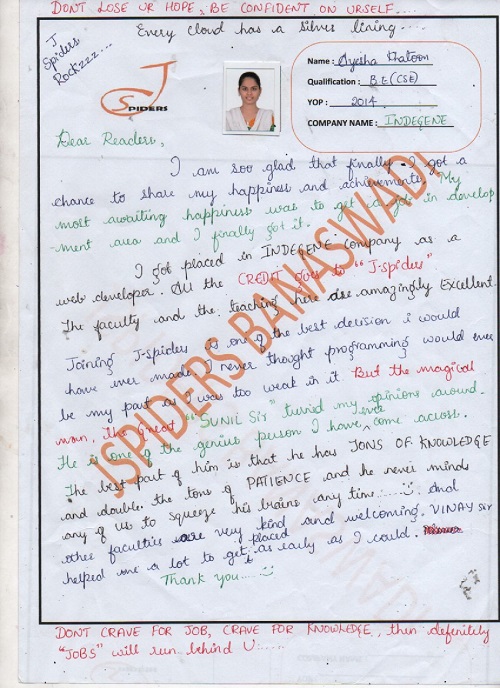 DONT LOSE UR HOPE, BE CONFIDENT ON URSELF....
Every cloud has a silver lining......
J Spiders Rockzzz...
J SPIDERS
Name : Ayesha Hatoon
Qualification : B.E (CSE)
YOP : 2014
COMPANY NAME : INDEGENE
Dear Readers,
I am soo glad that finally I got a
chance to share my happiness and achievements. My
most awaiting happiness was to get a job in develop
-ment area and I finally got it.
I got placed in INDEGENE company as a
web developer. All the CREDIT goes to "J-spiders"
The faculty and the teaching here are amazingly Excellent.
Joining J-spiders is one of the best decision i would
have ever made. I never thought programming would ever
be my part as I was too weak in it But the magical
man, the great "SUNIL Sir" turned my opinions around.
He is one of the genius person I have ever come across.
The best part of him is that he has TONS OF KNOWLEDGE
and double the tons of PATIENCE and he never mind
any of us to squeeze his brains any time....... And
other faculties are very kind and welcoming. VINAY Sir
helped me a lot to get placed as early as I could.
Thank you.....
JSPIDERS BANASWADI
DONT CRAVE FOR JOB, CRAVE FOR KNOWLEDGE, then defenitely
"JOBS" will run behind U:.....